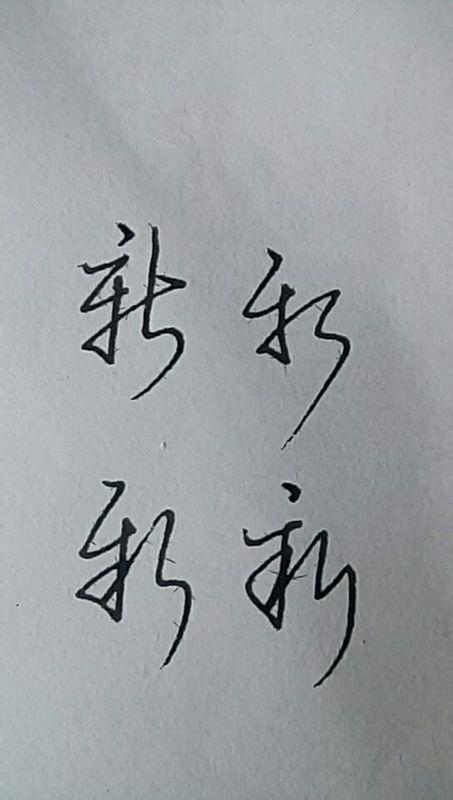 新 新
新 新